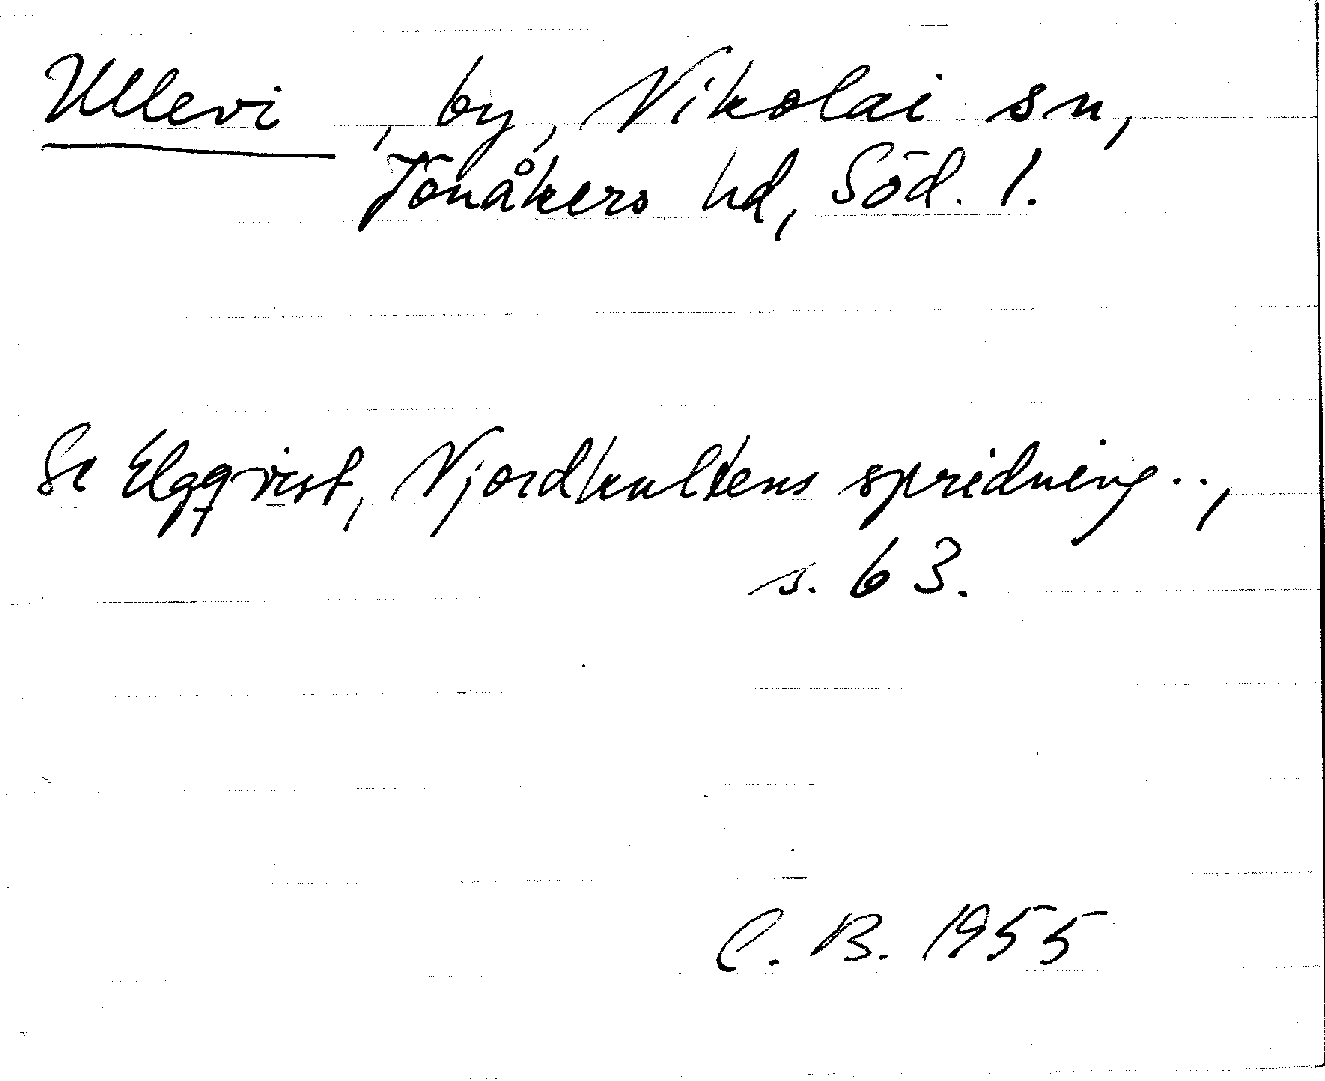 Ullevi, by, Nikolai sn,
Jönåkers hd, Söd. l.
Se Elgqvist, Njordkultens spridning..,
s. 63.
C. B. 1955